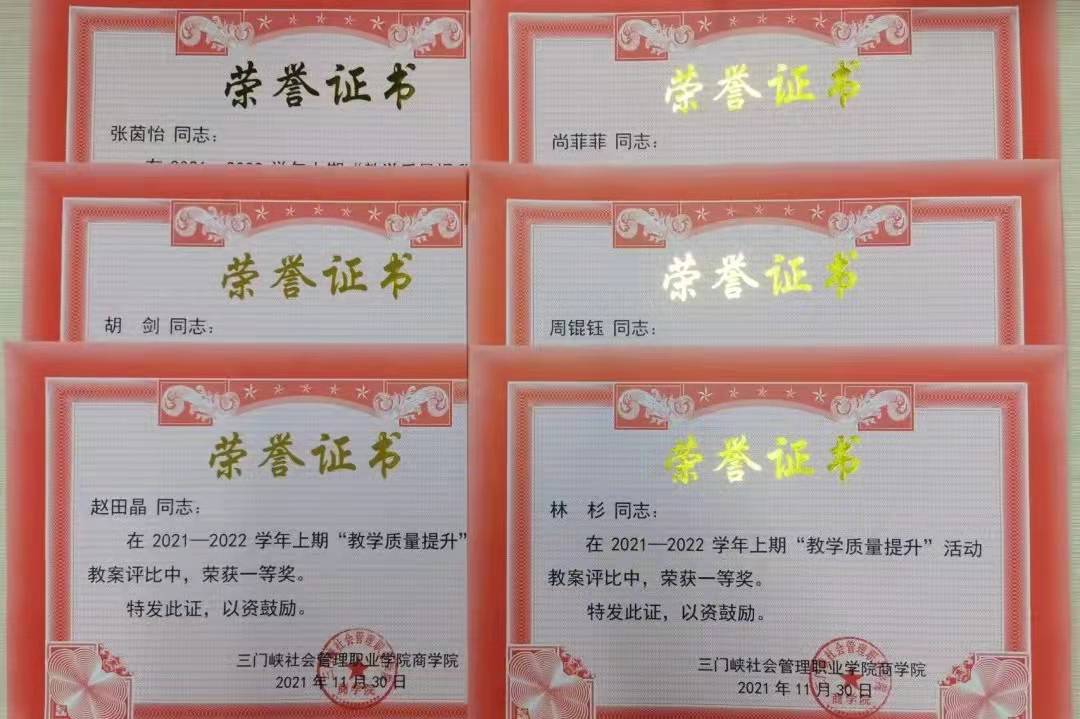 荣誉证书
张茵怡 同志：
荣誉证书
尚菲菲 同志：
荣誉证书
胡 剑 同志：
荣誉证书
周锟钰 同志：
荣誉证书
赵田晶 同志：
在 2021—2022 学年上期“教学质量提升”
教案评比中，荣获一等奖。
特发此证，以资鼓励。
三门峡社会管理职业学院商学院
2021 年 11 月 30 日
商学院
荣誉证书
林 杉 同志：
在 2021—2022 学年上期“教学质量提升”活动
教案评比中，荣获一等奖。
特发此证，以资鼓励。
三门峡社会管理职业学院商学院
2021 年 11 月 30 日
商学院